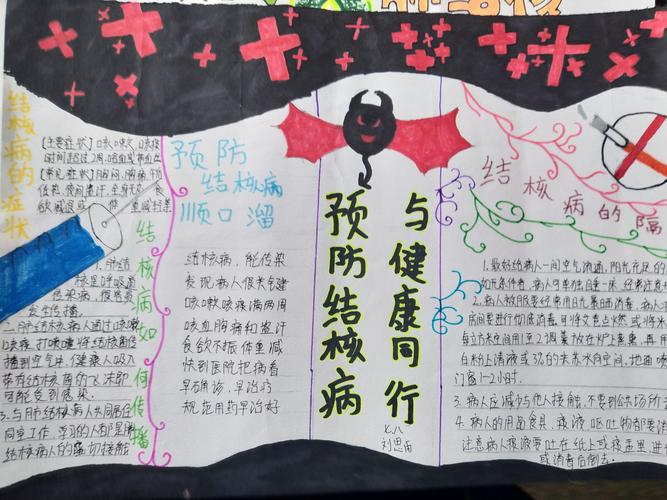 结核病的症状
[主要症状] 咳嗽、咳痰
时间超过2周、咯血或
[常见症状] 胸闷、胸痛
低热、夜间盗汗、全身无
食欲减退或
结核病如何传播
1.肺结
核是呼吸道
传染病，很容易
发生传播。
2.肺结核病人通过咳嗽
咳痰、打喷嚏将结核菌
播到空气中，健康人吸入
带有结核菌的飞沫即
可能受到感染。
3.与肺结核病人共同居住
同室工作、学习的人都是
结核病人的密切接触
预防
结核病
顺口溜
结核病，能传染
发现病人很关键
咳嗽咳痰满两周
咳血胸痛和盗汗
食欲不振体重减
快到医院把病看
早确诊，早治疗
规范用药早治好
预防结核病
与健康同行
七、八
结核病的隔
1.最好给病人一间空气流通、阳光充足的
如无条件者，病人可单独睡一床，
2.病人被服要经常用日光暴晒消毒，病人
房间要进行彻底消毒。可将
门窗1-2小时.
3.病人应减少与他人接触，不要到公共场所
4.病人的用品食具、痰液、呕吐物都要消
注意病人痰液要吐在纸上或痰盂里，进
或消毒后倒去。